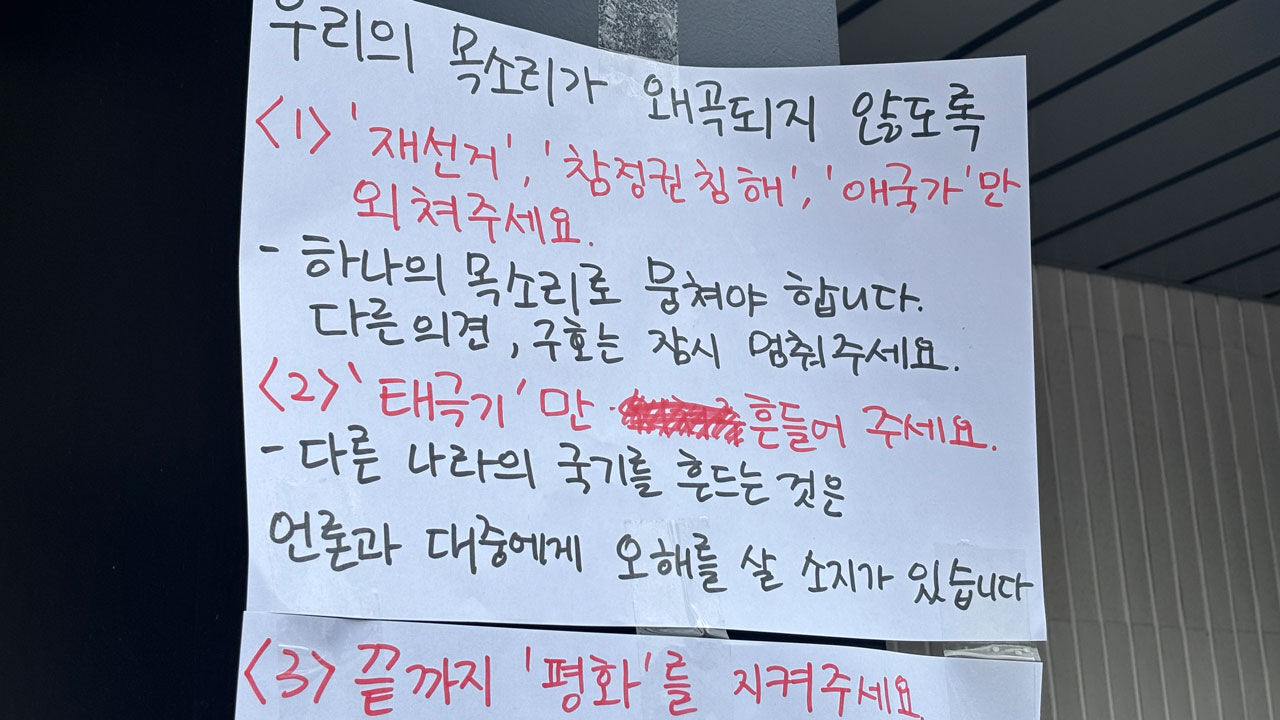 우리의 목소리가 왜곡되지 않도록
<1> '재선거', '참정권침해', '애국가'만
외쳐주세요.
- 하나의 목소리로 뭉쳐야 합니다.
다른의견, 구호는 잠시 멈춰주세요.
<2> '태극기'만 흔들어 주세요.
- 다른 나라의 국기를 흔드는 것은
언론과 대중에게 오해를 살 소지가 있습니다
<3> 끝까지 '평화'를 지켜주세요